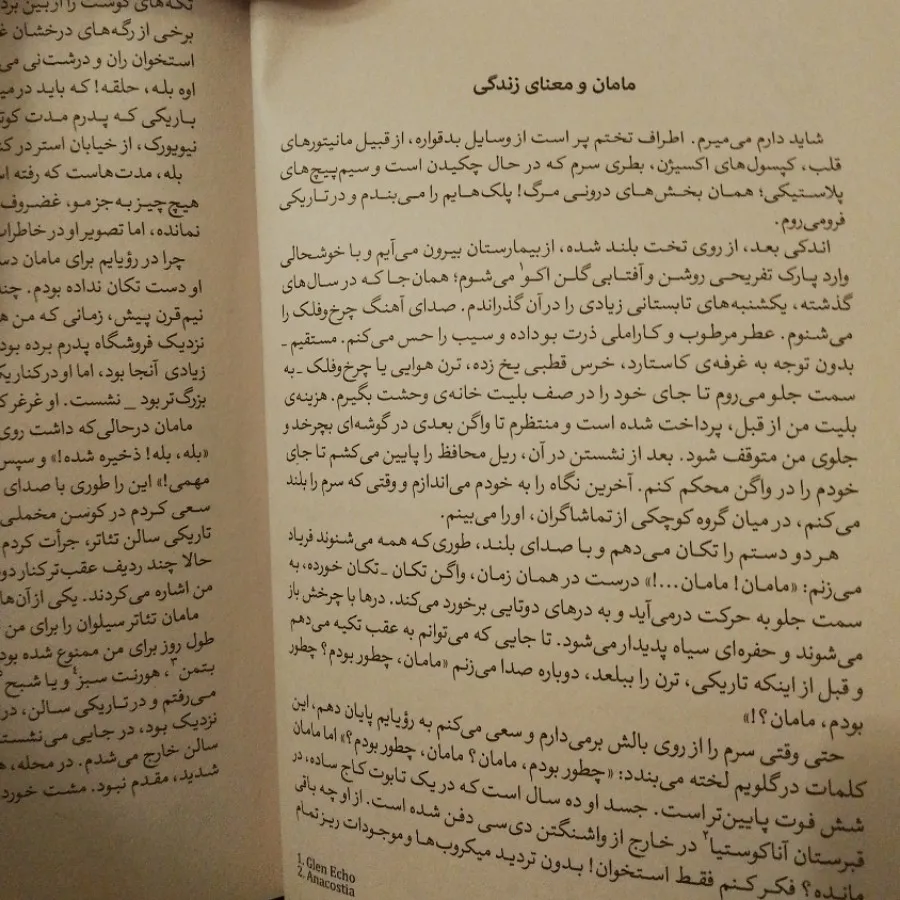 مامان و معنای زندگی
شاید دارم می‌میرم. اطراف تختم پر است از وسایل بدقواره، از قبیل مانیتورهای
قلب، کپسول‌های اکسیژن، بطری سرم که در حال چکیدن است و سیم‌پیچ‌های
پلاستیکی؛ همان بخش‌های درونی مرگ! پلک‌هایم را می‌بندم و در تاریکی
فرومی‌روم.
اندکی بعد، از روی تخت بلند شده، از بیمارستان بیرون می‌آیم و با خوشحالی
وارد پارک تفریحی روشن و آفتابی گلن اکو۱ می‌شوم؛ همان جا که در سال‌های
گذشته، یکشنبه‌های تابستانی زیادی را در آن گذراندم. صدای آهنگ چرخ‌وفلک را
می‌شنوم. عطر مرطوب و کاراملی ذرت بو داده و سیب را حس می‌کنم. مستقیم ـ
بدون توجه به غرفه‌ی کاستارد، خرس قطبی یخ زده، ترن هوایی یا چرخ‌وفلک ـ به
سمت جلو می‌روم تا جای خود را در صف بلیت خانه‌ی وحشت بگیرم. هزینه‌ی
بلیت من از قبل، پرداخت شده است و منتظرم تا واگن بعدی در گوشه‌ای بچرخد و
جلوی من متوقف شود. بعد از نشستن در آن، ریل محافظ را پایین می‌کشم تا جای
خودم را در واگن محکم کنم. آخرین نگاه را به خودم می‌اندازم و وقتی که سرم را بلند
می‌کنم، در میان گروه کوچکی از تماشاگران، او را می‌بینم.
هر دو دستم را تکان می‌دهم و با صدای بلند، طوری که همه می‌شنوند فریاد
می‌زنم: «مامان! مامان...!» درست در همان زمان، واگن تکان ـ تکان خورده، به
سمت جلو به حرکت درمی‌آید و به درهای دوتایی برخورد می‌کند. درها با چرخش باز
می‌شوند و حفره‌ای سیاه پدیدار می‌شود. تا جایی که می‌توانم به عقب تکیه می‌دهم
و قبل از اینکه تاریکی، ترن را ببلعد، دوباره صدا می‌زنم «مامان، چطور بودم؟ چطور
بودم، مامان؟!»
حتی وقتی سرم را از روی بالش برمی‌دارم و سعی می‌کنم به رؤیایم پایان دهم، این
کلمات در گلویم لخته می‌بندد: «چطور بودم، مامان؟ مامان، چطور بودم؟» اما مامان
شش فوت پایین‌تر است. جسد او ده سال است که در یک تابوت کاج ساده، در
قبرستان آناکوستیا۲ در خارج از واشنگتن دی‌سی دفن شده است. از او چه باقی
مانده؟ فکر کنم فقط استخوان! بدون تردید میکروب‌ها و موجودات ریز تمام
1. Glen Echo
2. Anacostia
تکه‌های گوشت را از بین برد
برخی از رگه‌های درخشان
استخوان ران و درشت‌نی
اوه بله، حلقه! که باید در
باریکی که پدرم مدت
نیویورک، از خیابان استر در
بله، مدت‌هاست که رفته
هیچ چیز به جز مو، غضروف
نمانده، اما تصویر او در
چرا در رؤیایم برای مامان
او دست تکان نداده بودم.
نیم‌قرن پیش، زمانی که من
نزدیک فروشگاه پدرم برده
زیادی آنجا بود، اما او در کنار
بزرگ‌تر بود _ نشست. او غرغر
مامان درحالی‌که داشت روی
«بله، بله! ذخیره شده!» و سپس
مهمی!» این را طوری با صدای
سعی کردم در کوسن مخملی
تاریکی سالن تئاتر، جرأت کردم
حالا چند ردیف عقب‌تر کنار
من اشاره می‌کردند. یکی از آن‌ها
مامان تئاتر سیلوان را برای من
طول روز برای من ممنوع شده بود
بتمن۳، هورنت سبز۴ و یا شبح
می‌رفتم و در تاریکی سالن، در
نزدیک بود، در جایی می‌نشستم
سالن خارج می‌شدم. در محله،
شدید، مقدم نبود. مشت